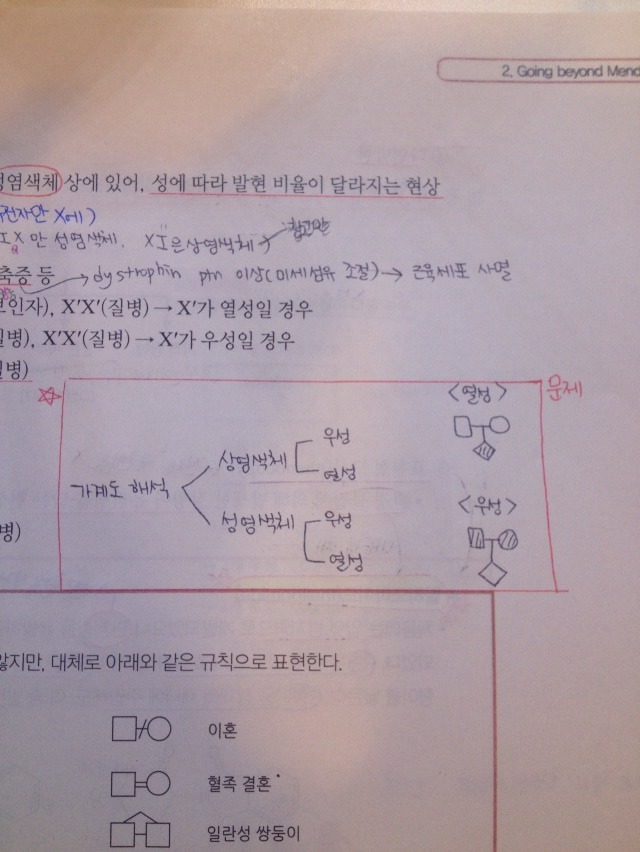 2. Going beyond Mend
성염색체 상에 있어, 성에 따라 발현 비율이 달라지는 현상
전자만 X에)
만 성염색체. XI은 상염색체 → 참고만
축증 등 → dystrophin ptn 이상(미세섬유 조절) → 근육세포 사멸
보인자), X′X′(질병) → X′가 열성일 경우
질병), X′X′(질병) → X′가 우성일 경우
질병)
문제
가계도 해석
상염색체
우성
열성
성염색체
우성
열성
<열성>
<우성>
병)
않지만, 대체로 아래와 같은 규칙으로 표현한다.
이혼
혈족 결혼
일란성 쌍둥이